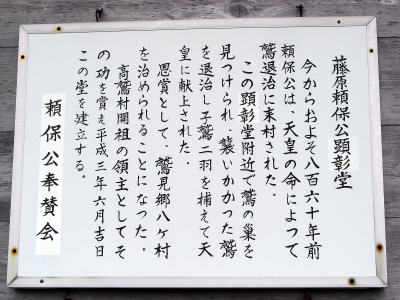 藤原頼保公顕彰堂
今からおよそ八百六十年前
頼保公は、天皇の命によって
鷲退治に来村された。
この顕彰堂附近で鷲の巣を
見つけられ、襲いかかった鷲
を退治し子鷲二羽を捕えて天
皇に献上された。
恩賞として、鷲見郷八ヶ村
を治められることになった。
高鷲村開祖の領主としてそ
の功を賞え平成三年六月吉日
この堂を建立する。
頼保公奉賛会